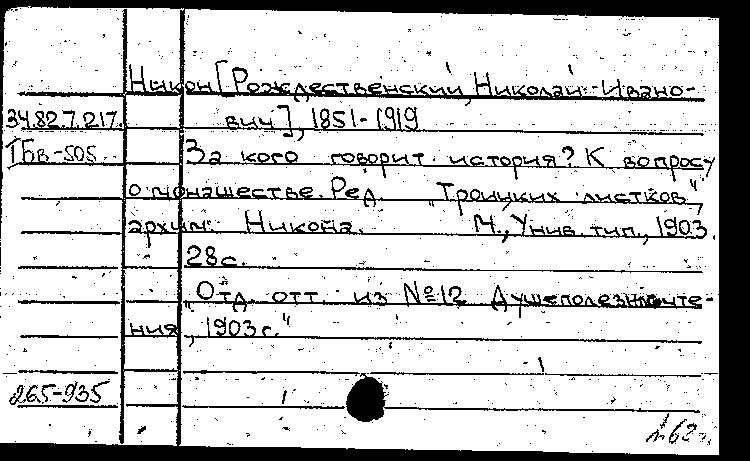 Никон [Рождественский, Николай Ивано-
34.82.7.217. вич], 1851-1919
I Бв-505 За кого говорит история? К вопросу
о монашестве. Ред. "Троицких листков",
архим. Никона. М., Унив. тип., 1903.
28 с.
"Отд. отт. из №12 Душеполезн. чте-
ния, 1903 г."
265-935